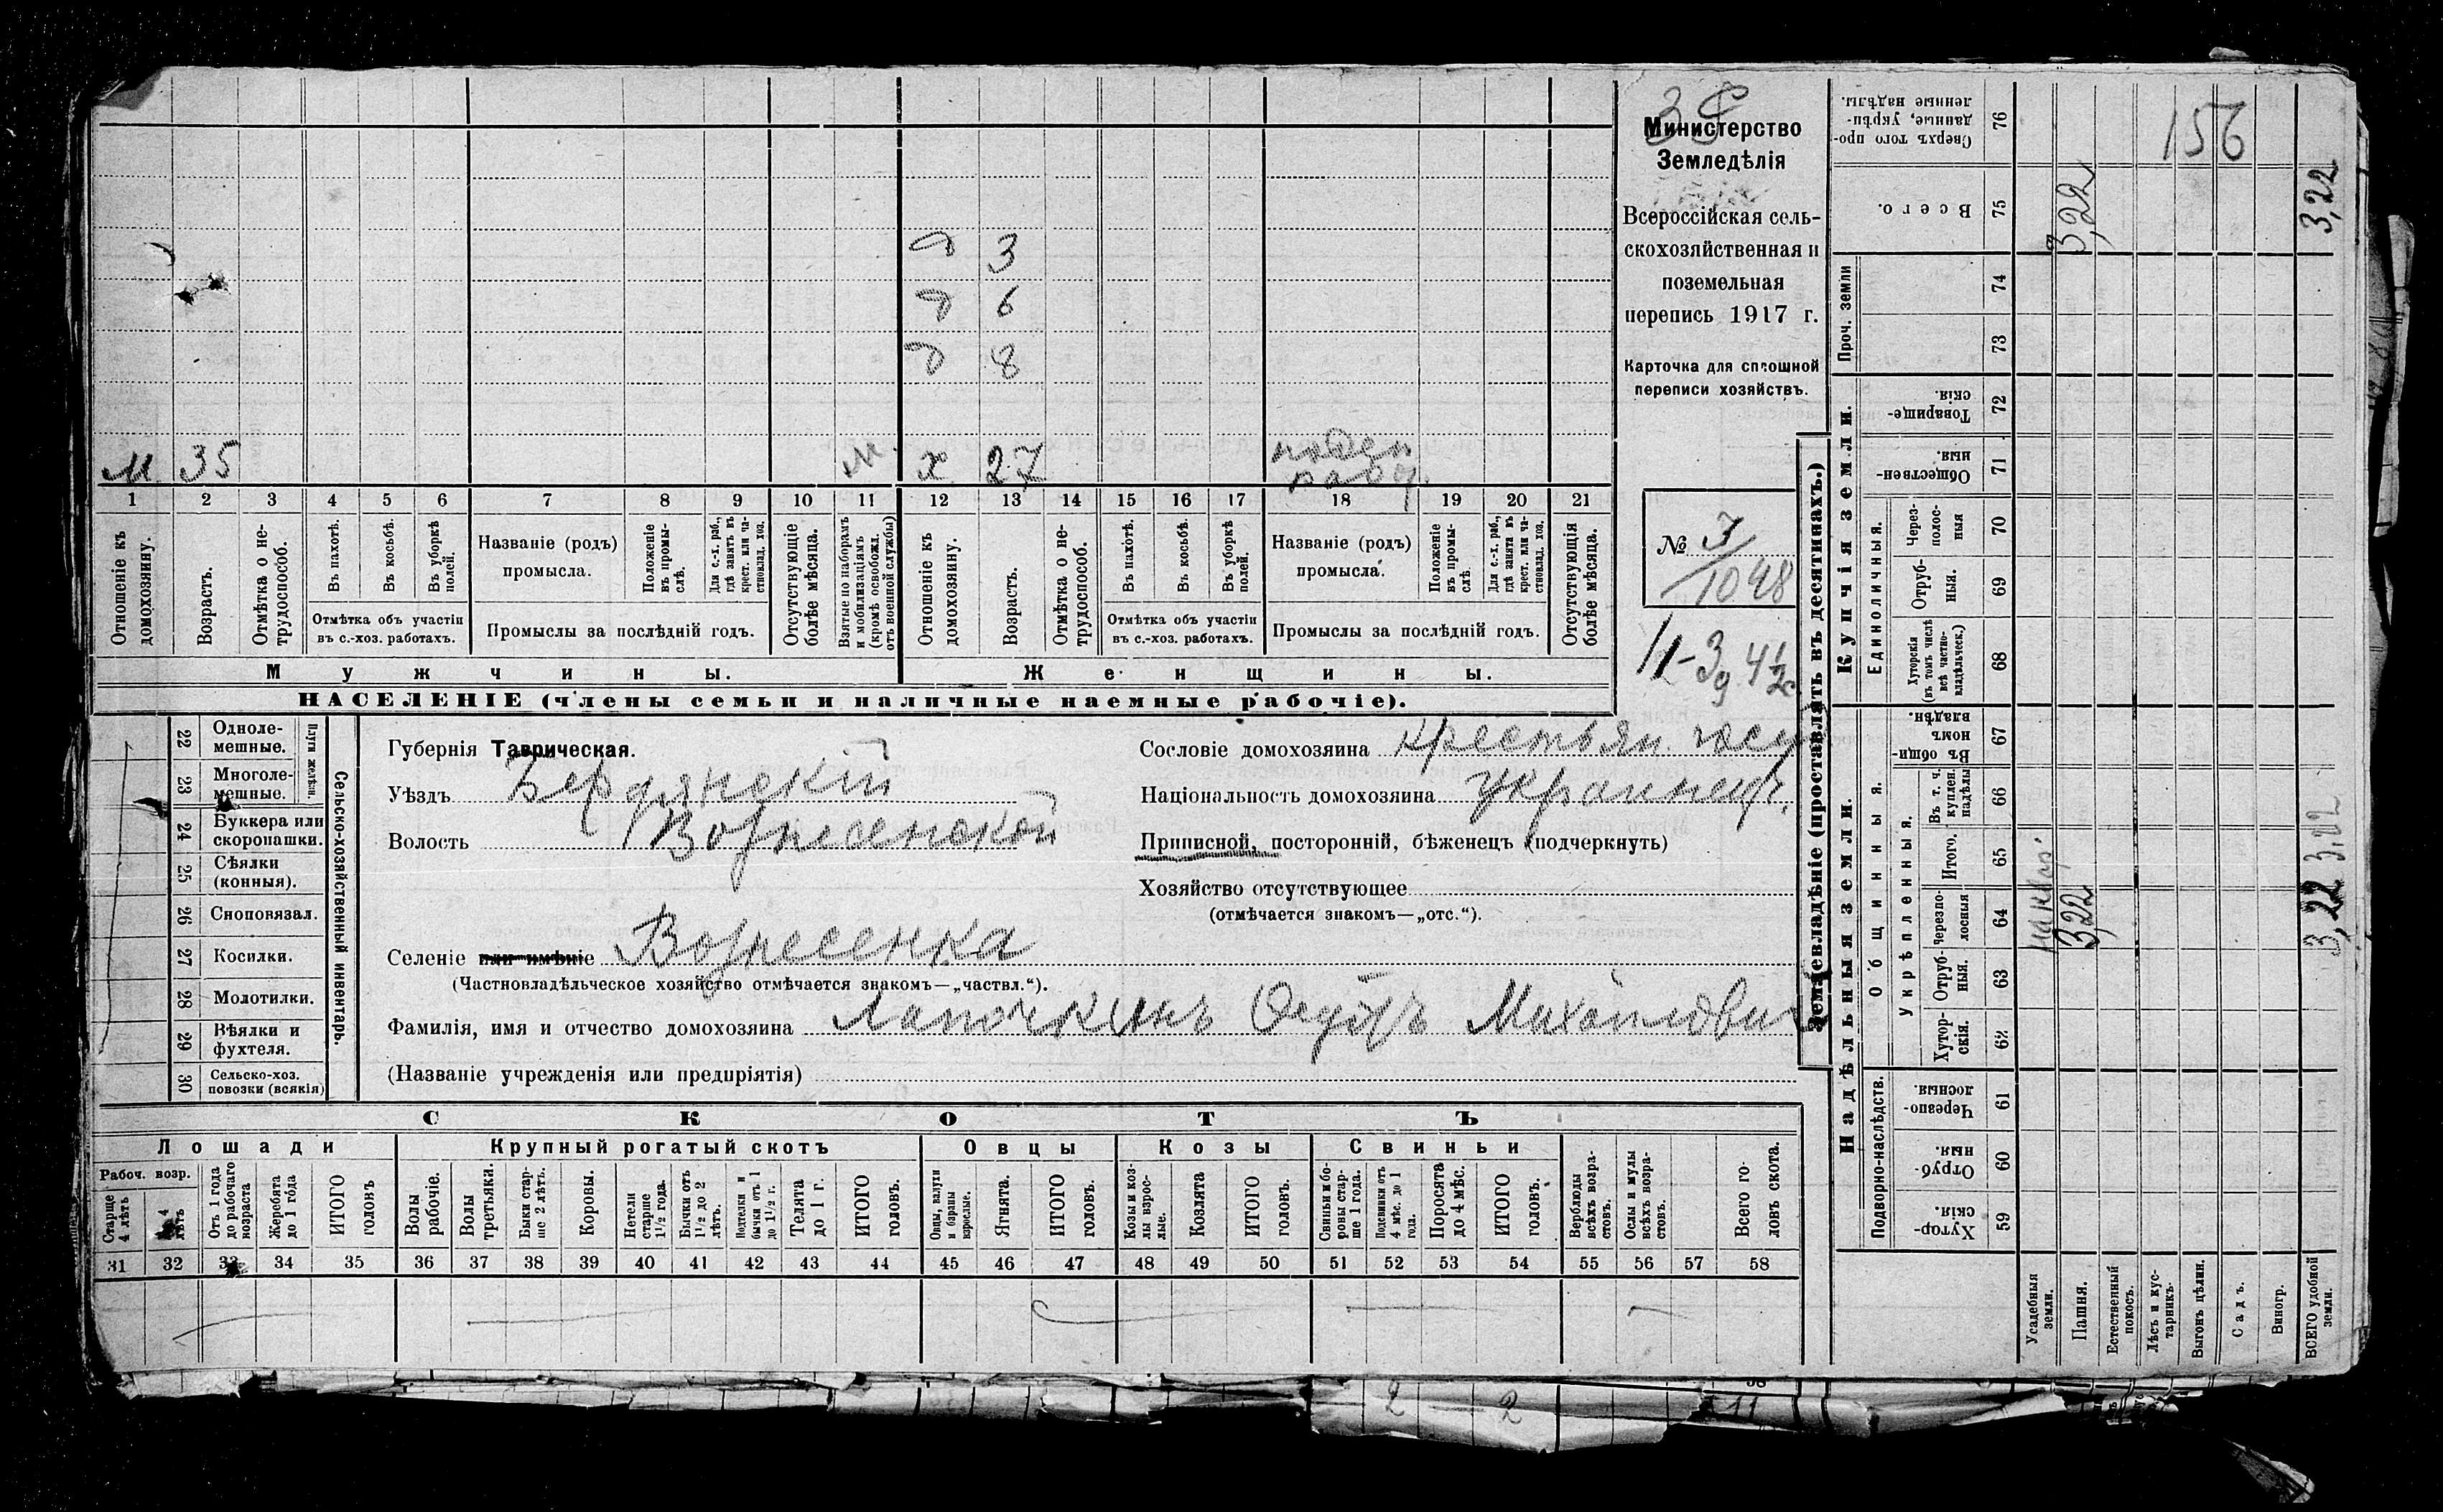 З
Министерство
Земледѣлія
Всероссійская сель-
скохозяйственная и
поземельная
перепись 1917 г.
Карточка для сплошной
переписи хозяйствъ.
№ 7/1048
д 3
д 6
д 8
м 35 м. х 27 поден. раб.
1 2 3 4 5 6 7 8 9 10 11 12 13 14 15 16 17 18 19 20 21
Отношеніе къ домохозяину.
Возрастъ.
Отмѣтка о не-трудоспособ.
Въ пахотѣ.
Въ косьбѣ.
Въ уборкѣ полей.
Отмѣтка объ участіи
въ с.-хоз. работахъ.
Названіе (родъ)
промысла.
Положеніе въ промы-слѣ.
Для с.-х. раб., гдѣ занятъ въ крест. или ча-стновлад. хоз.
Промыслы за послѣдній годъ.
Отсутствующіе болѣе мѣсяца.
Взятые по наборамъ и мобилизаціямъ (кромѣ освобожд. отъ военной службы)
Отношеніе къ домохозяину.
Возрастъ.
Отмѣтка о не-трудоспособ.
Въ пахотѣ.
Въ косьбѣ.
Въ уборкѣ полей.
Отмѣтка объ участіи
въ с.-хоз. работахъ.
Названіе (родъ)
промысла.
Положеніе въ промы-слѣ.
Для с.-х. раб., гдѣ занята въ крест. или ча-стновлад. хоз.
Промыслы за послѣдній годъ.
Отсутствующія болѣе мѣсяца.
Мужчины. Женщины.
НАСЕЛЕНІЕ (члены семьи и наличные наемные рабочіе).
Сельско-хозяйственный инвентарь.
Плуги желѣзн.
22 Одноле-мешные.
23 Многоле-мешные.
24 Буккера или скоропашки.
25 Сѣялки (конныя).
26 Сноповязал.
27 Косилки.
28 Молотилки.
29 Вѣялки и фухтеля.
30 Сельско-хоз. повозки (всякія)
Губернія Таврическая.
Уѣздъ Бердянскій
Волость Вознесенской
Селеніе или имѣніе Вознесенка
(Частновладѣльческое хозяйство отмѣчается знакомъ—„частвл.“).
Фамилія, имя и отчество домохозяина Лапочкинъ Михайлович
(Названіе учрежденія или предпріятія)
Сословіе домохозяина крестьян. госу
Національность домохозяина украинецъ.
Приписной, посторонній, бѣженецъ (подчеркнуть)
Хозяйство отсутствующее
(отмѣчается знакомъ—„отс.“).
СКОТЪ
Лошади Крупный рогатый скотъ Овцы Козы Свиньи
Рабоч. возр.
Старше 4 лѣтъ
4 лѣтъ
Отъ 1 года до рабочаго возраста
Жеребята до 1 года
ИТОГО головъ
Волы рабочіе.
Волы третьяки.
Быки стар-ше 2 лѣтъ.
Коровы.
Нетели старше 1½ года.
Бычки отъ 1½ до 2 лѣтъ.
Подтелки и бычки отъ 1 до 1½ г.
Телята до 1 г.
ИТОГО головъ.
Овцы, валухи и бараны взрослые.
Ягнята.
ИТОГО головъ.
Козы и коз-лы взрос-лые.
Козлята
ИТОГО головъ.
Свиньи и бо-ровы стар-ше 1 года.
Подсвинки отъ 4 мѣс. до 1 года.
Поросята до 4 мѣс.
ИТОГО головъ.
Верблюды всѣхъ возра-стовъ.
Ослы и мулы всѣхъ возра-стовъ.
Всего го-ловъ скота.
31 32 33 34 35 36 37 38 39 40 41 42 43 44 45 46 47 48 49 50 51 52 53 54 55 56 57 58
Землевладѣніе (проставлять въ десятинахъ.)
Купчія земли. Надѣльныя земли.
Сверхъ того про-данные, укрѣп-ленные надѣлы. 76
156
Всего. 75 3,22 3,22
Проч. земли 74 73
Товарище-скія. 72
Обществен-ныя. 71
Единоличныя.
Через-полос-ныя 70
Отруб-ныя. 69
Хуторскія (въ томъ числѣ всѣ частно-владѣльческ.) 68
Общинныя.
Въ общи-номъ владѣн. 67
Укрѣпленныя.
Въ т. ч. куплен. надѣлы 66
Итого. 65
Черезпо-лосныя 64 3,22 3,22 3,22
Отруб-ныя. 63
Хутор-скія. 62
Подворно-наслѣдств.
Черезпо-лосныя 61
Отруб-ныя. 60
Хутор-скія. 59
Усадебныя земли.
Пашня.
Естественный покосъ.
Лѣсъ и кус-тарникъ.
Выгонъ цѣлин.
Садъ.
Виногр.
ВСЕГО удобной земли.
2 2 11